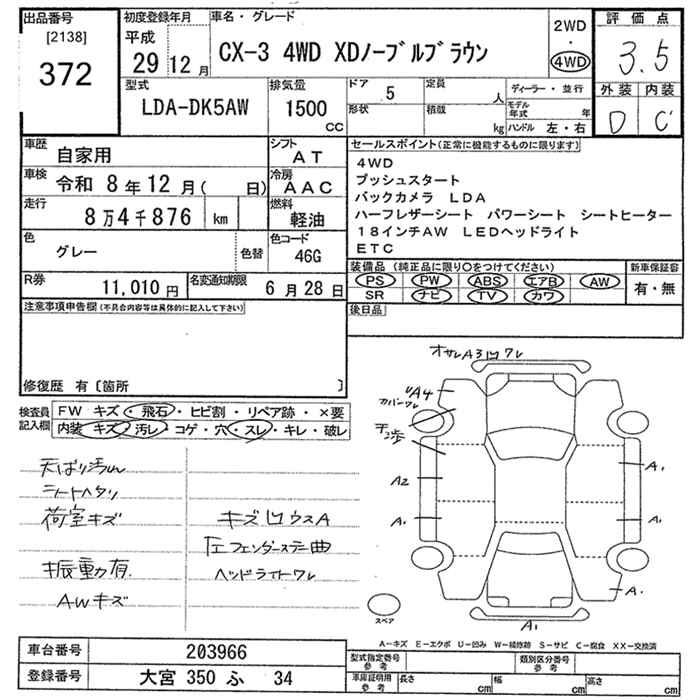 出品番号
[2138]
372
初度登録年月
平成
29 12 月
車名・グレード
CX-3 4WD XDノーブルブラウン
2WD
・
4WD
評価点
3.5
外装 内装
D C
型式
LDA-DK5AW
排気量
1500
CC
ドア 5
形状
定員
人
積載
kg
ディーラー・並行
モデル年式 年
ハンドル 左・右
車歴
自家用
シフト
AT
車検 令和 8年12月( 日)
冷房
AAC
走行
8万4千876 km
燃料
軽油
色
グレー
色替
色コード
46G
R券
11,010 円
名変通知期限
6月28日
セールスポイント(正常に機能するものに限ります)
4WD
プッシュスタート
バックカメラ LDA
ハーフレザーシート パワーシート シートヒーター
18インチAW LEDヘッドライト
ETC
装備品 (純正品に限り○をつけてください)
PS PW ABS エアB AW
SR ナビ TV カワ
新車保証書
有・無
後日品
注意事項申告欄(不具合内容等は具体的に記入して下さい)
修復歴 有〔箇所 〕
検査員
記入欄
FW キズ・飛石・ヒビ割・リペア跡・×要
内装 キズ・汚レ・コゲ・穴・スレ・キレ・破レ
天ばり汚れ
シートヘタリ
荷室キズ
振動有
AWキズ
キズ凹ウスA
左フェンダーステー曲
ヘッドライトワレ
オサレA3凹ワレ
A4
カバーワレ
A2
A1
A1
A1
A1
A1
スペア
A-キズ E-エクボ U-凹み W-補修跡 S-サビ C-腐食 XX-交換済
車台番号
203966
登録番号
大宮 350 ふ 34
型式指定番号
参考
類別区分番号
参考
車庫証明用
参考
長さ cm
幅 cm
高さ cm